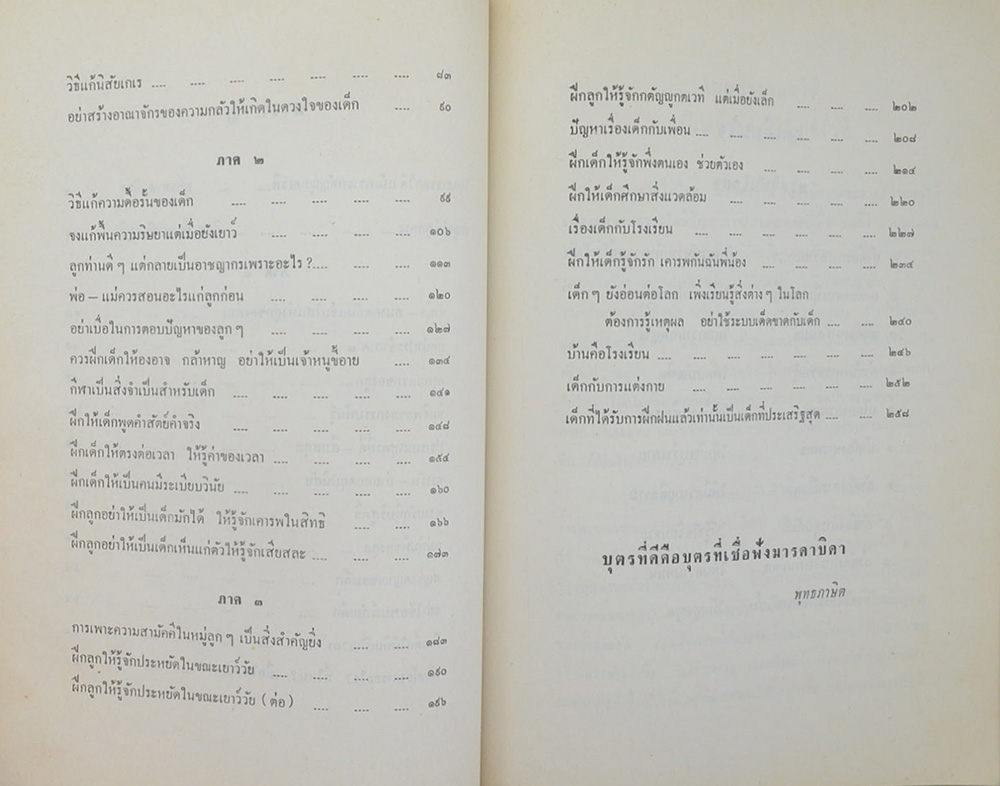 วิธีแก้นิสัยเกเร .... .... .... .... .... .... .... ๘๓
อย่าสร้างอาณาจักรของความกลัวให้เกิดในดวงใจของเด็ก .... ๙๐
ภาค ๒
วิธีแก้ความดื้อรั้นของเด็ก .... .... .... .... .... ๙๙
จงแก้พื้นความริษยาแต่เมื่อยังเยาว์ .... .... .... .... ๑๐๖
ลูกท่านดี ๆ แต่กลายเป็นอาชญากรเพราะอะไร ? .... .... .... ๑๑๓
พ่อ – แม่ควรสอนอะไรแก่ลูกก่อน .... .... .... .... ๑๒๐
อย่าเบื่อในการตอบปัญหาของลูก ๆ .... .... .... .... ๑๒๗
ควรฝึกเด็กให้องอาจ กล้าหาญ อย่าให้เป็นเจ้าหนูขี้อาย .... ๑๓๔
กีฬาเป็นสิ่งจำเป็นสำหรับเด็ก .... .... .... .... ๑๔๑
ฝึกให้เด็กพูดคำสัตย์คำจริง .... .... .... .... .... ๑๔๘
ฝึกเด็กให้ตรงต่อเวลา ให้รู้ค่าของเวลา .... .... .... .... ๑๕๔
ฝึกเด็กให้เป็นคนมีระเบียบวินัย .... .... .... .... .... ๑๖๐
ฝึกลูกอย่าให้เป็นเด็กมักได้ ให้รู้จักเคารพในสิทธิ .... .... ๑๖๖
ฝึกลูกอย่าให้เป็นเด็กเห็นแก่ตัวให้รู้จักเสียสละ .... .... .... ๑๗๓
ภาค ๓
การเพาะความสามัคคีในหมู่ลูก ๆ เป็นสิ่งสำคัญยิ่ง .... .... ๑๘๓
ฝึกลูกให้รู้จักประหยัดในขณะเยาว์วัย .... .... .... .... ๑๙๐
ฝึกลูกให้รู้จักประหยัดในขณะเยาว์วัย ( ต่อ ) .... .... .... ๑๙๖
ฝึกลูกให้รู้จักกตัญญูกตเวที แต่เมื่อยังเล็ก .... .... .... ๒๐๒
ปัญหาเรื่องเด็กกับเพื่อน .... .... .... .... .... ๒๐๘
ฝึกเด็กให้รู้จักพึ่งตนเอง ช่วยตัวเอง .... .... .... ๒๑๔
ฝึกให้เด็กศึกษาสิ่งแวดล้อม .... .... .... .... ๒๒๐
เรื่องเด็กกับโรงเรียน .... .... .... .... .... ๒๒๗
ฝึกให้เด็กรู้จักรัก เคารพกันฉันพี่น้อง .... .... .... .... ๒๓๔
เด็ก ๆ ยังอ่อนต่อโลก เพิ่งเรียนรู้สิ่งต่าง ๆ ในโลก
ต้องการรู้เหตุผล อย่าใช้ระบบเด็ดขาดกับเด็ก .... .... ๒๔๐
บ้านคือโรงเรียน .... .... .... .... .... .... ๒๔๖
เด็กกับการแต่งกาย .... .... .... .... .... ๒๕๒
เด็กที่ได้รับการฝึกฝนแล้วเท่านั้นเป็นเด็กที่ประเสริฐสุด .... .... ๒๕๘
บุตรที่ดีคือบุตรที่เชื่อฟังมารดาบิดา
พุทธภาษิต